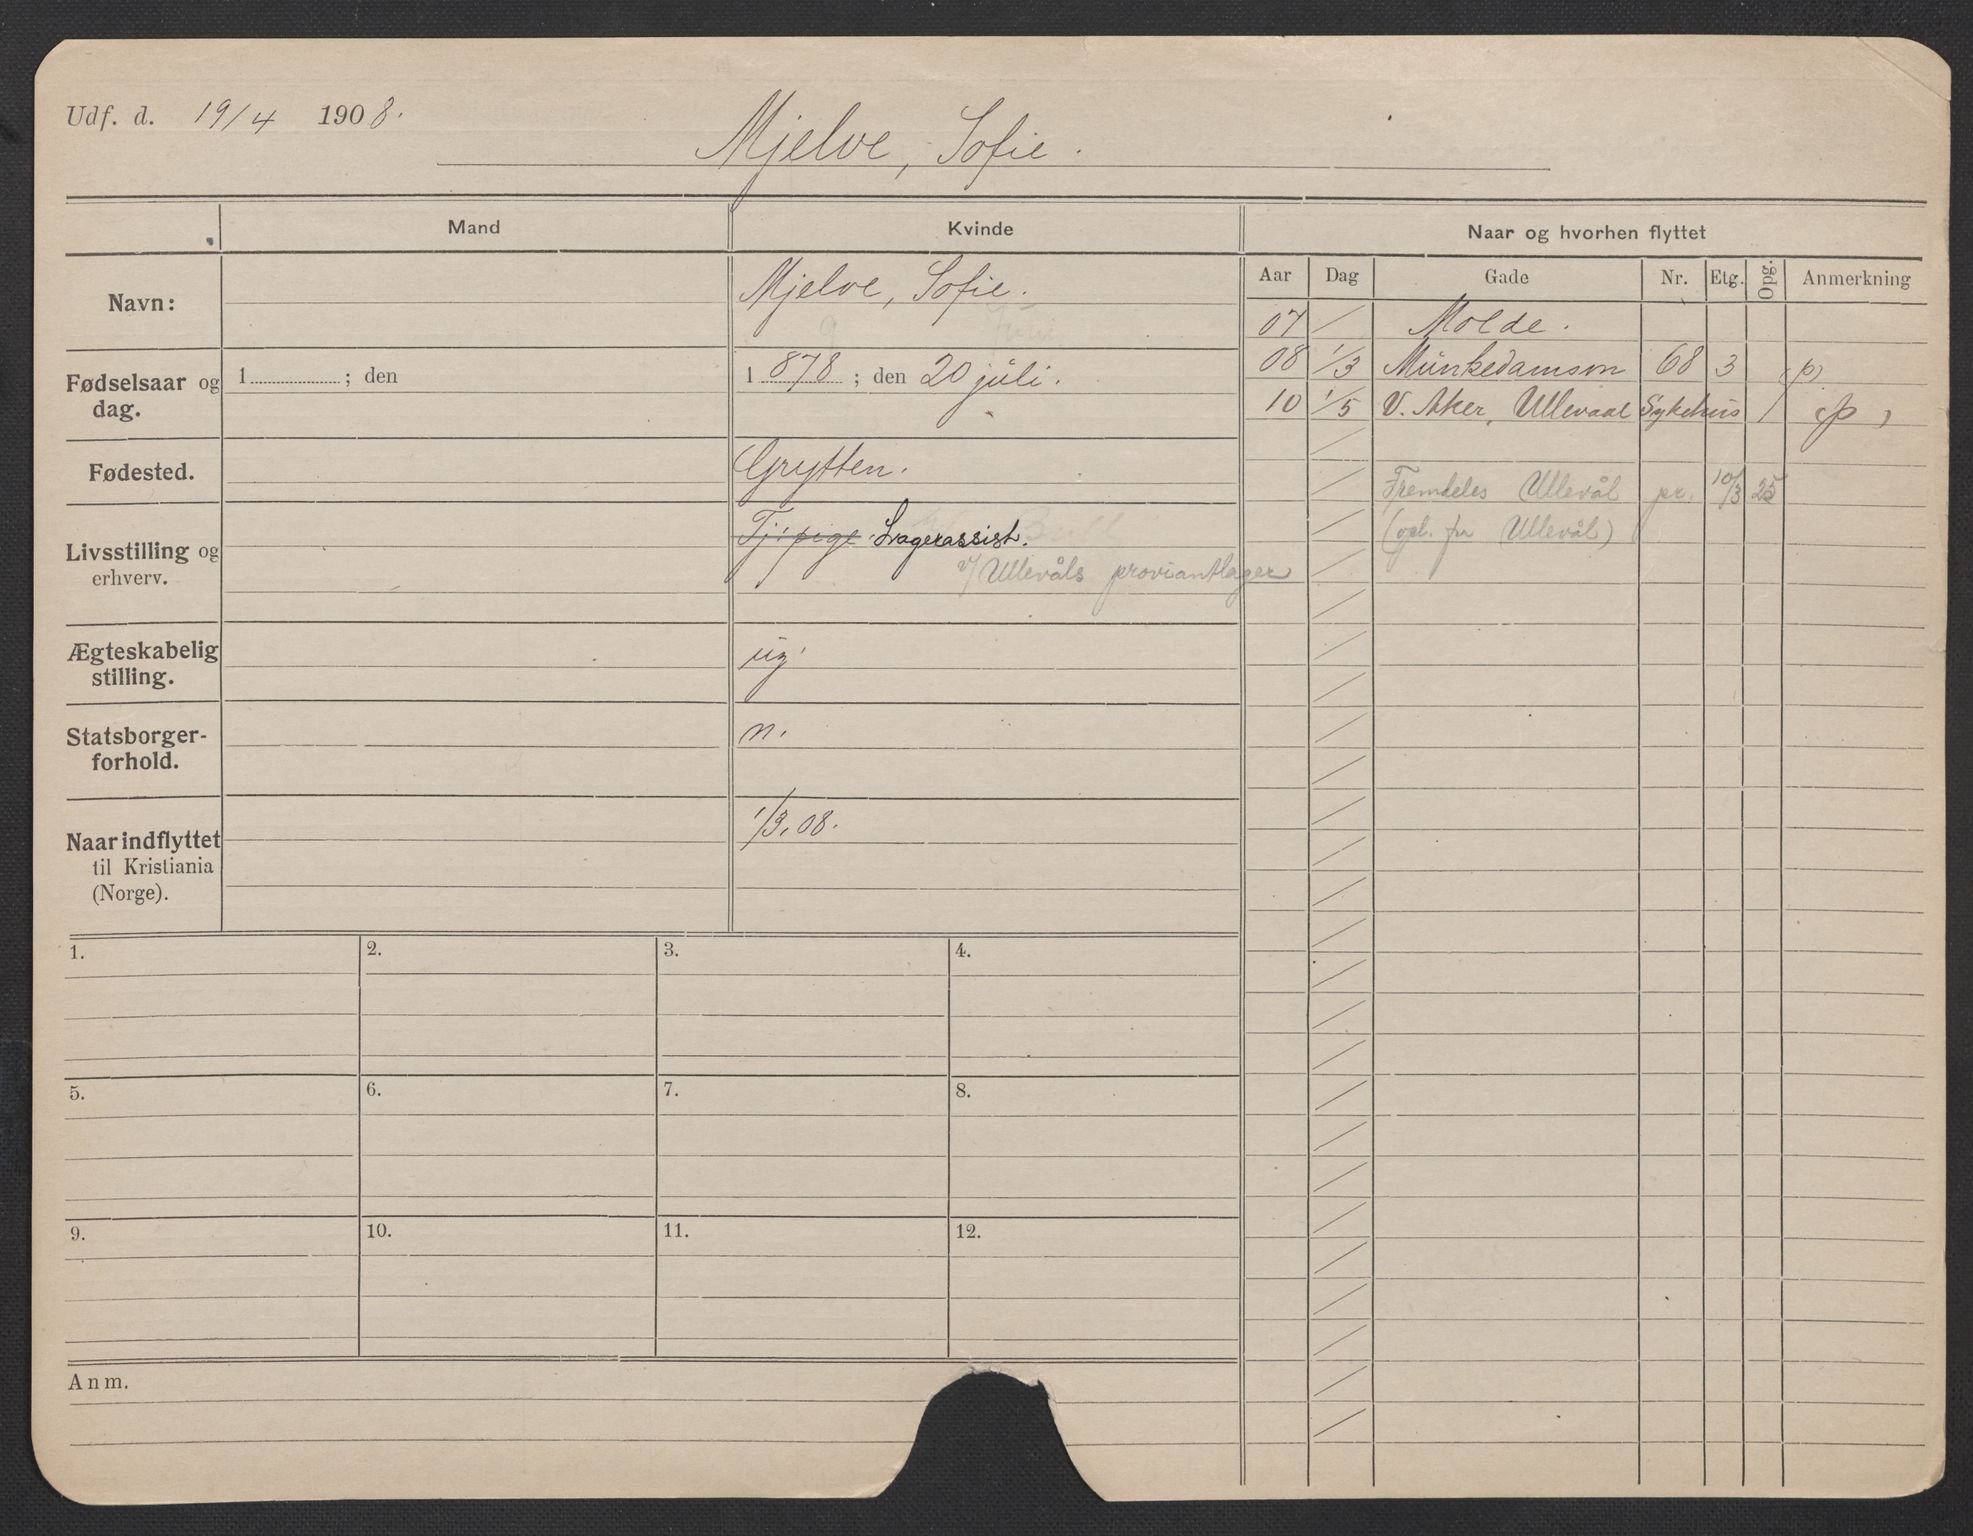 Udf. d. 19/4 1908.
Mjelve, Sofie.
Mand
Kvinde
Naar og hvorhen flyttet
Aar Dag Gade Nr. Etg. Opg. Anmerkning
Navn:
Mjelve, Sofie.
Fødselsaar og
dag.
1 ; den
1878 ; den 20 júli.
Fødested.
Grytten.
Livsstilling og
erhverv.
Tj. pige. Lagerassist.
v/ Ullevåls proviantlager
Ægteskabelig
stilling.
ug.
Statsborger-
forhold.
n.
Naar indflyttet
til Kristiania
(Norge).
1/3.08.
07 / Molde.
08 1/3 Munkedamsvn 68 3 (p)
10 1/5 V. Aker, Ullevaal Sykehus / (p)
Fremdeles Ullevål pr. 10/3 25
(opl. fra Ullevål)
1. 2. 3. 4.
5. 6. 7. 8.
9. 10. 11. 12.
Anm.